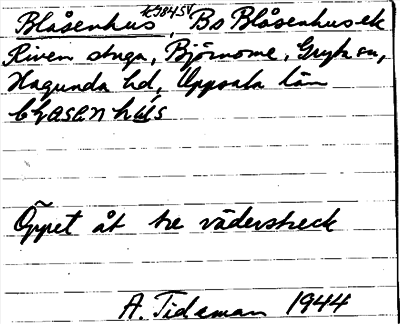 Blåsenhus, Bs Blåsenhus ek
Riven stuga, Björnome, Gryta sn,
Hagunda hd, Uppsala län
Öppet åt tre väderstreck
A. Tideman 1944